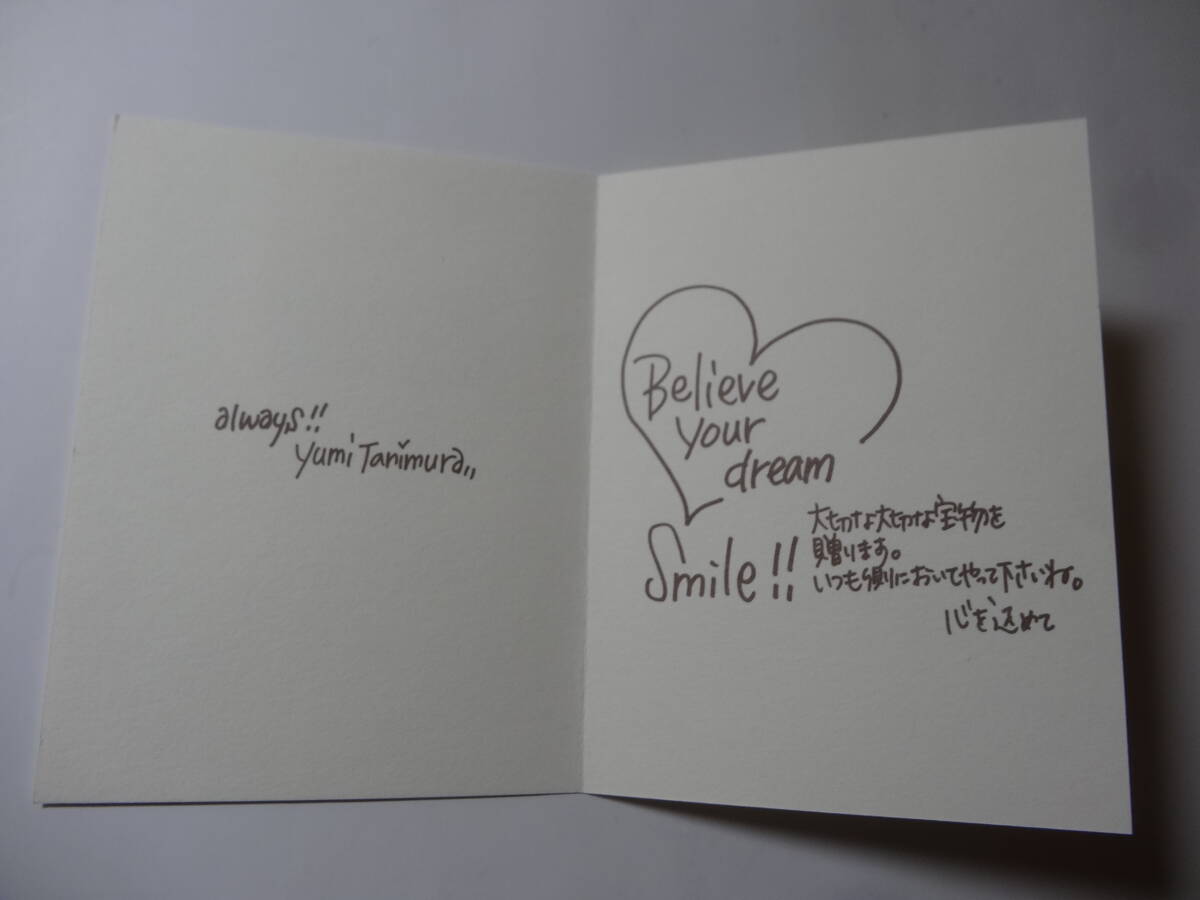 always!!
Yumi Tanimura,,
Believe
your
dream
Smile!!
大切な大切な宝物を
贈ります。
いつも側においてやって下さいね。
心を込めて